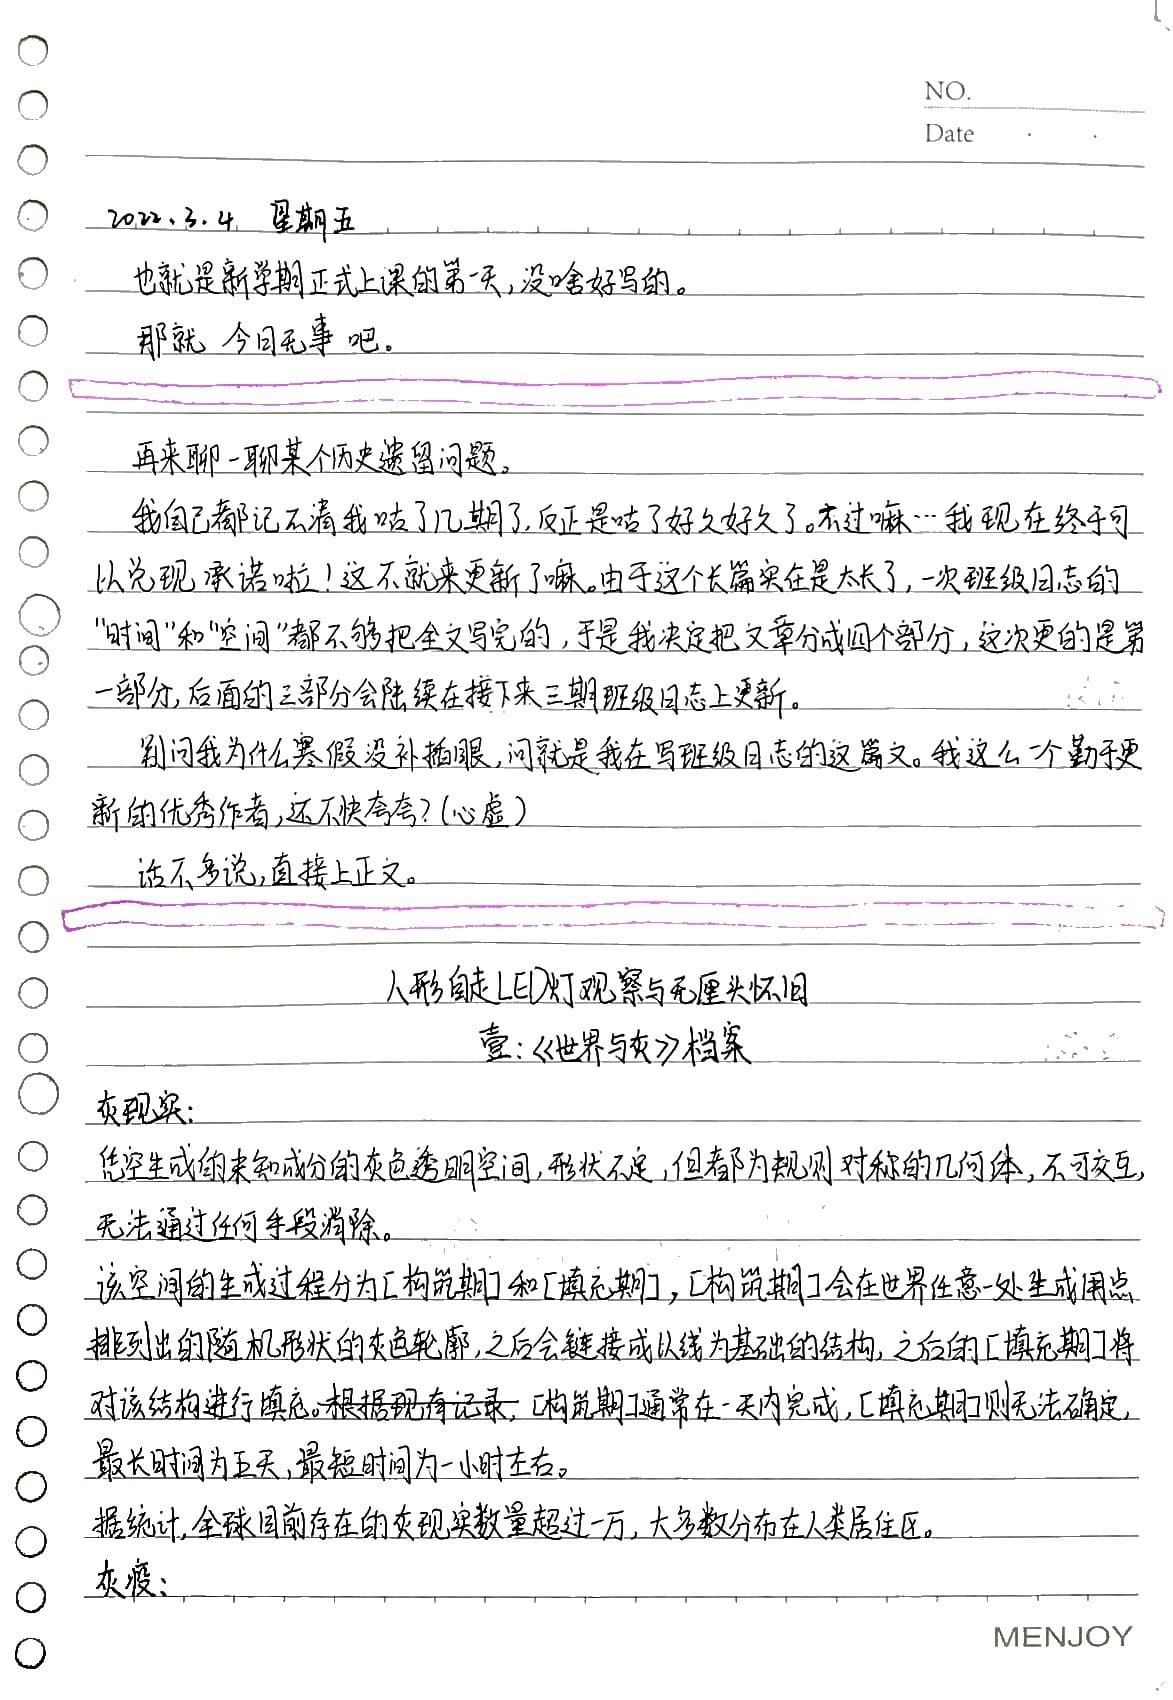 NO.
Date
2022.3.4 星期五
也就是新学期正式上课的第一天,没啥好写的。
那就 今日无事 吧。
再来聊一聊某个历史遗留问题。
我自己都记不清我咕了几期了,反正是咕了好久好久了。不过嘛…我现在终于可
以兑现承诺啦!这不就来更新了嘛。由于这个长篇实在是太长了,一次班级日志的
"时间"和"空间"都不够把全文写完的,于是我决定把文章分成四个部分,这次更的是第
一部分,后面的三部分会陆续在接下来三期班级日志上更新。
别问我为什么寒假没补插眼,问就是我在写班级日志的这篇文。我这么一个勤于更
新的优秀作者,还不快夸夸?(心虚)
话不多说,直接上正文。
人形自走LED灯观察与无厘头怀旧
壹:《世界与灰》档案
灰现实:
凭空生成的未知成分的灰色透明空间,形状不定,但都为规则对称的几何体,不可交互,
无法通过任何手段消除。
该空间的生成过程分为[构筑期]和[填充期],[构筑期]会在世界任意一处生成用点
排列出的随机形状的灰色轮廓,之后会链接成以线为基础的结构,之后的[填充期]将
对该结构进行填充。根据现有记录,[构筑期]通常在一天内完成,[填充期]则无法确定,
最长时间为五天,最短时间为一小时左右。
据统计,全球目前存在的灰现实数量超过一万,大多数分布在人类居住区。
灰疫:
MENJOY